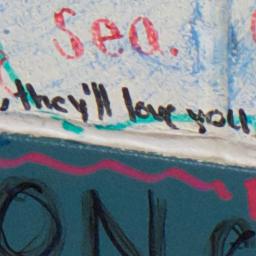 Sea.
, they'll love you
ON